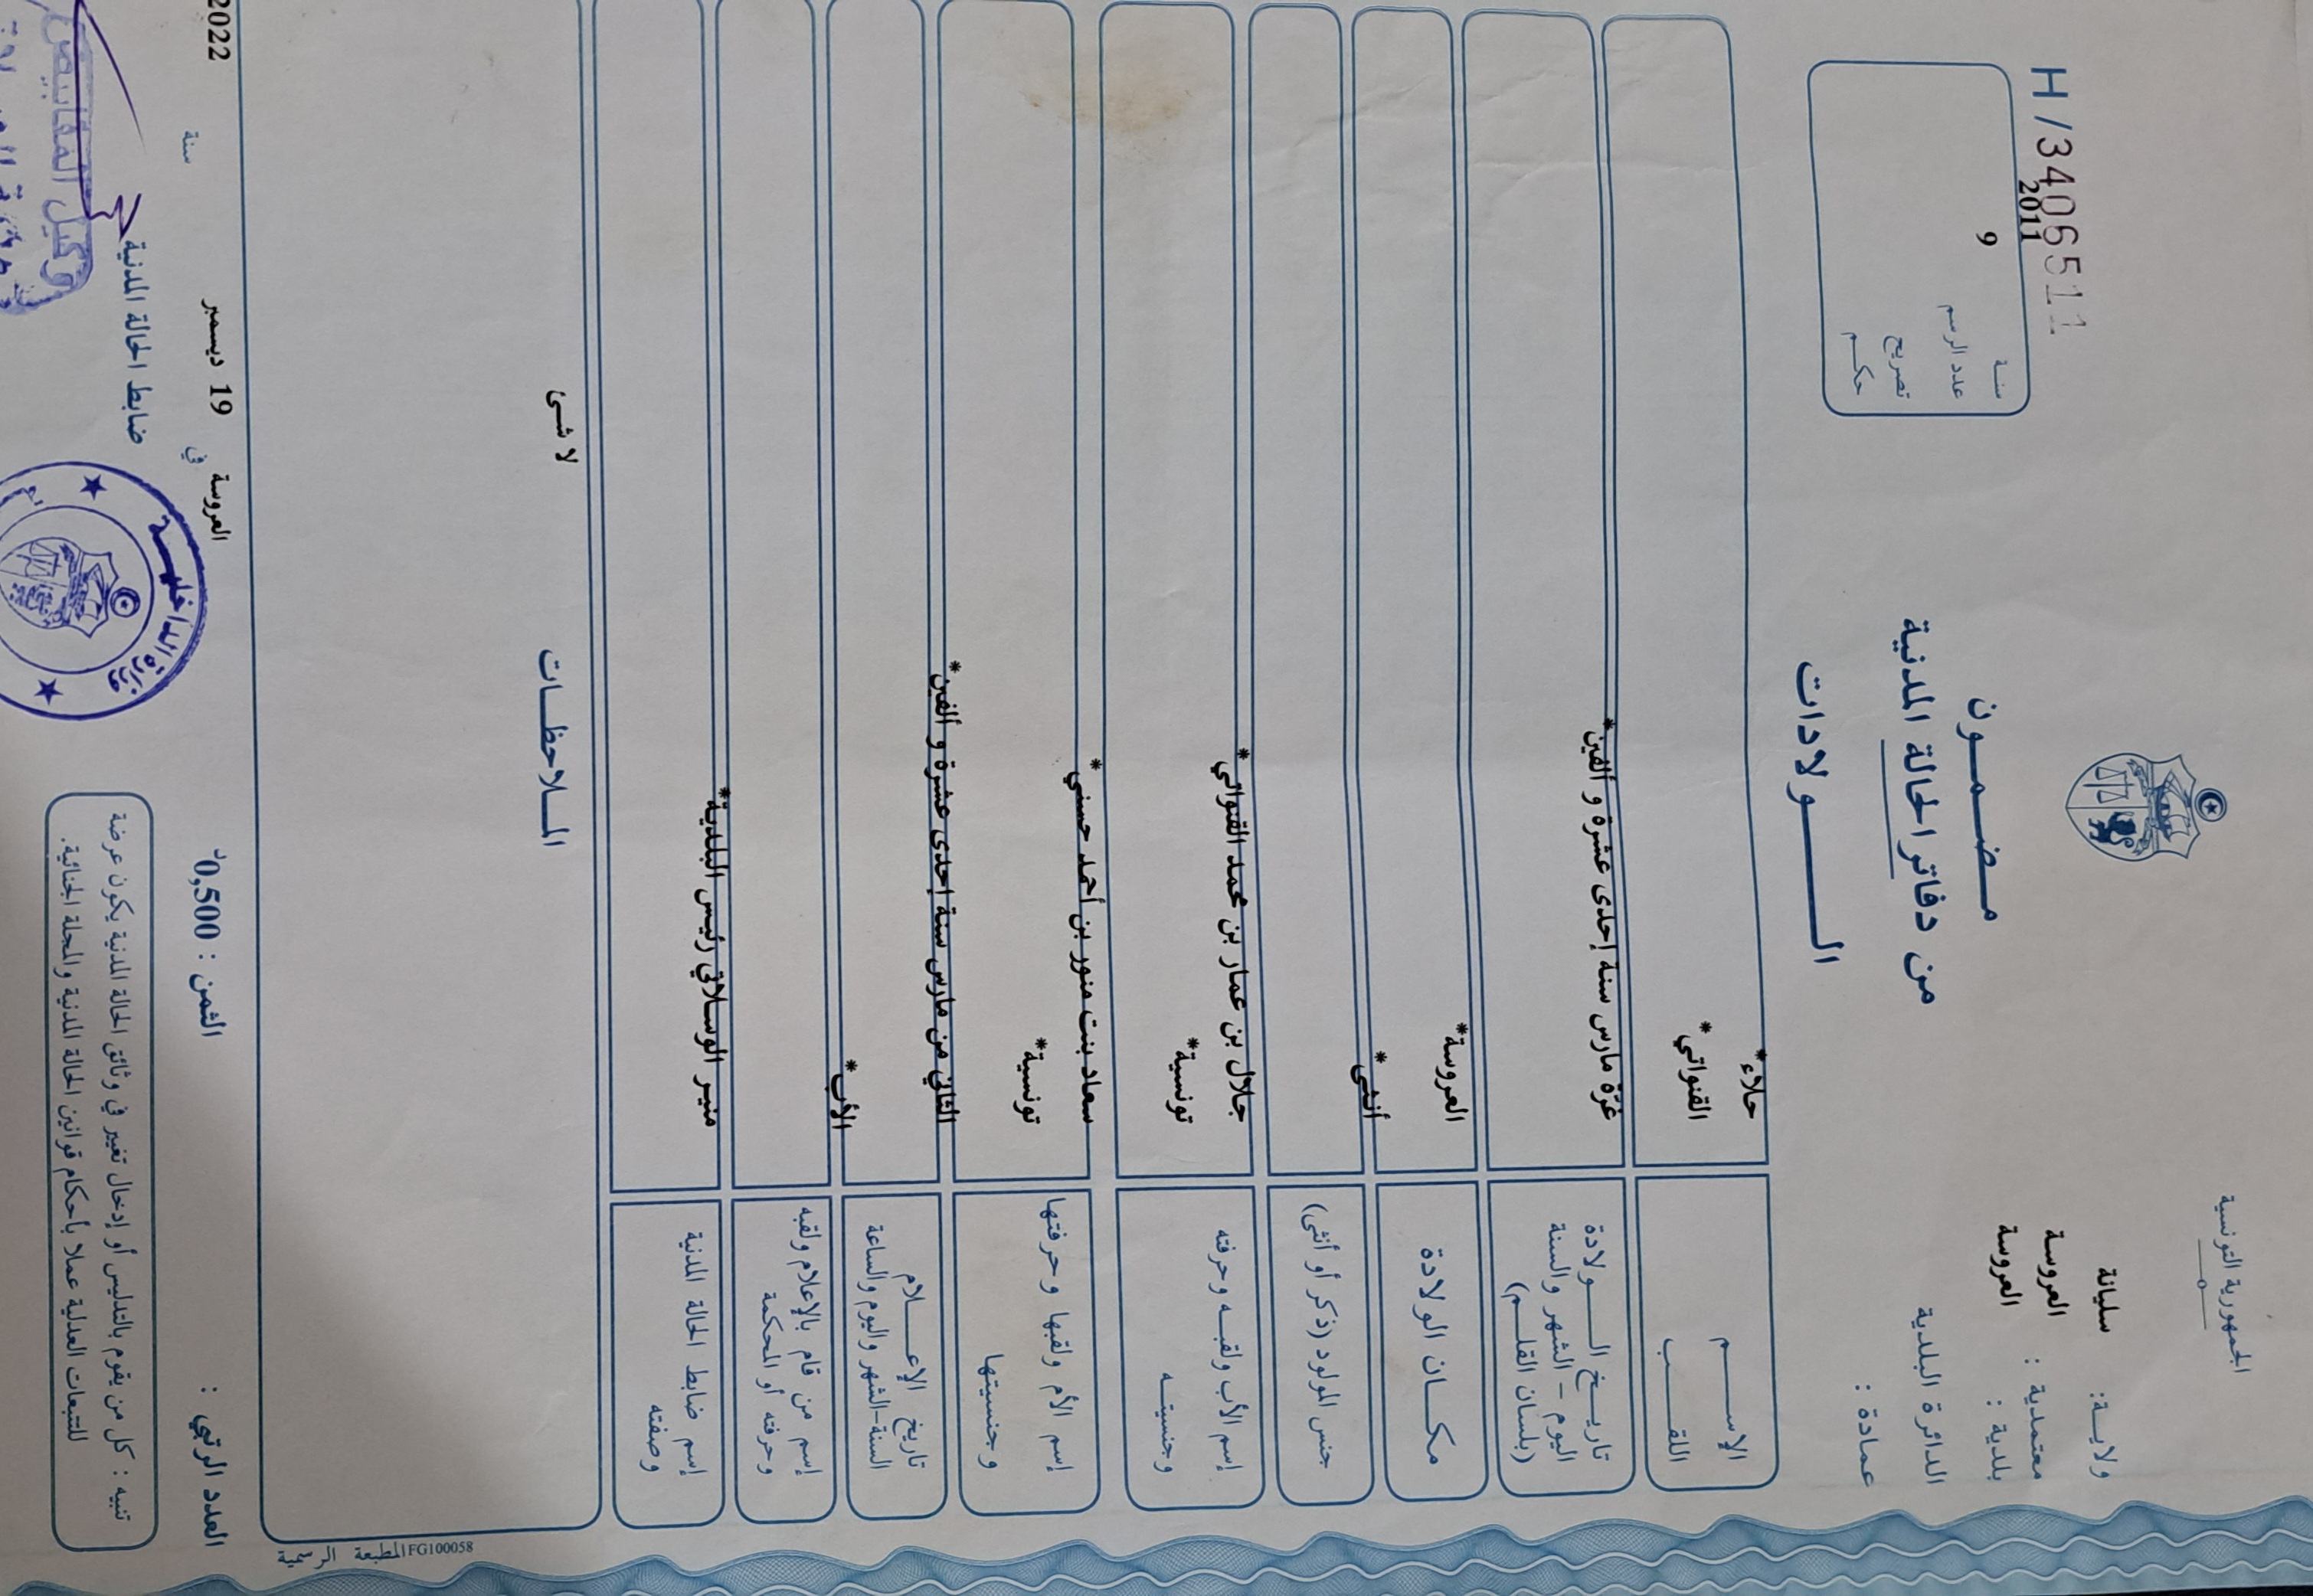 الجمهورية التونسية
ولايـة: سليانة
معتمدية : العروسة
بلدية : العروسة
الدائرة البلدية
عمادة :
H/3406511
سنـة 2011
عدد الرسم 9
تصريح
حكـم
مـضـمـون
من دفاتر الحالة المدنية
الـــولادات
الإســـم حلاء*
اللقـــب القنواتي*
تاريـخ الـــولادة غرّة مارس سنة إحدى عشرة و ألفين*
اليوم – الشهر والسنة
(بلسان القلـم)
مكـان الولادة العروسة*
جنس المولود (ذكر أو أنثى) أنثى*
إسم الأب ولقبـه وحرفته جلال بن عمار بن محمد القنواتي*
وجنسيتـه تونسية*
إسم الأم ولقبها وحرفتها سعاد بنت منور بن أحمد حسني*
وجنسيتها تونسية*
تاريخ الإعـــلام الثاني من مارس سنة إحدى عشرة و ألفين*
السنة-الشهر واليوم والساعة
إسم من قام بالإعلام ولقبه الأب*
وحرفته أو المحكمة
إسم ضابط الحالة المدنية منير الوسلاتي رئيس البلدية*
وصفته
المـلاحظـات
لا شئ
المطبعة الرسمية FG100058
العدد الرتبي :
الثمن : 0,500د
العروسة في 19 ديسمبر سنة 2022
ضابط الحالة المدنية
وزارة الداخليـــة
تنبيه : كل من يقوم بالتدليس أو إدخال تغيير في وثائق الحالة المدنية يكون عرضة
للتتبعات العدلية عملا بأحكام قوانين الحالة المدنية والمجلة الجنائية.